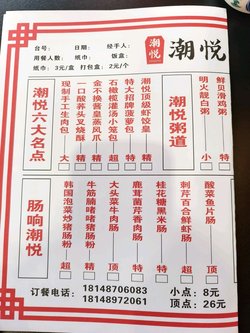 台号： 日期： 经手人：
用餐人数： 纸巾： 饭盒：
纸巾：3元/盒 打包盒：2元/个
潮悦
潮悦
潮悦六大名点
潮悦顶级虾饺皇 超
特大招牌菠萝包 特
石橄榄灌汤小笼包 超
金不换酱皇蒸凤爪 精
一口酸荞头叉烧酥 精
现制手工生肉包 大
潮悦粥道
鲜贝滑鸡粥 特
明火靓白粥 小
肠响潮悦
酸菜鱼片肠 顶
刺芹百合鲜虾肠 超
桂花糖黑米肠 特
鹿茸菌芹香肉肠 特
大头菜牛肉肠 顶
牛筋腩啫啫猪肠粉 精
韩国泡菜炒猪肠粉 超
订餐电话：18148706083
18148972061
小点：8元
顶点：26元